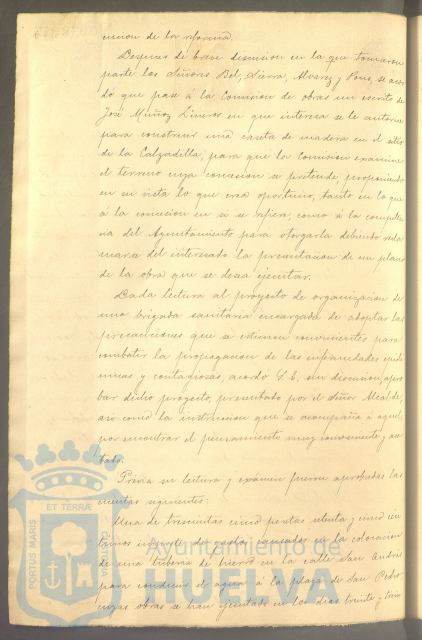 cusion de la reforma.
Despues de breve discusion en la que tomaron
parte los Señores Bel, Sierra, Alvarez y Pons, se acor
dó que pase á la Comision de obras un escrito de
José Muñoz Lineros en que interesa se le autorice
para construir una caseta de madera en el sitio
de la Calzadilla, para que la Comision examine
el terreno cuya concesion se pretende, proponiendo
en su vista lo que crea oportuno, tanto en lo que
á la concesion en si se refiere, como á la competen
cia del Ayuntamiento para otorgarla debiendo recla
marse del interesado la presentacion de un plano
de la obra que se desea ejecutar.
Dada lectura al proyecto de organizacion de
una brigada sanitaria encargada de adoptar las
precauciones que se estimen convenientes para
combatir la propagacion de las enfermedades epidé
micas y contagiosas, acordó S.E., sin discusion, apro
bar dicho proyecto, presentado por el Señor Alcalde,
asi como la instruccion que se acompaña á aquel
por encontrar el pensamiento muy conveniente y
Previa su lectura y exámen fueron aprobadas las
cuentas siguientes:
Una de trescientas cinco pesetas setenta y cinco cén
timos importe de gastos causados en la colocacion
de una tuberia de hierro en la calle San Andrés
para conducir el agua á la plaza de San Pedro,
cuyas obras se han ejecutado en los dias veinte y
PORTUS MARIS
ET TERRÆ
CUSTODIA
Ayuntamiento de
HUELVA